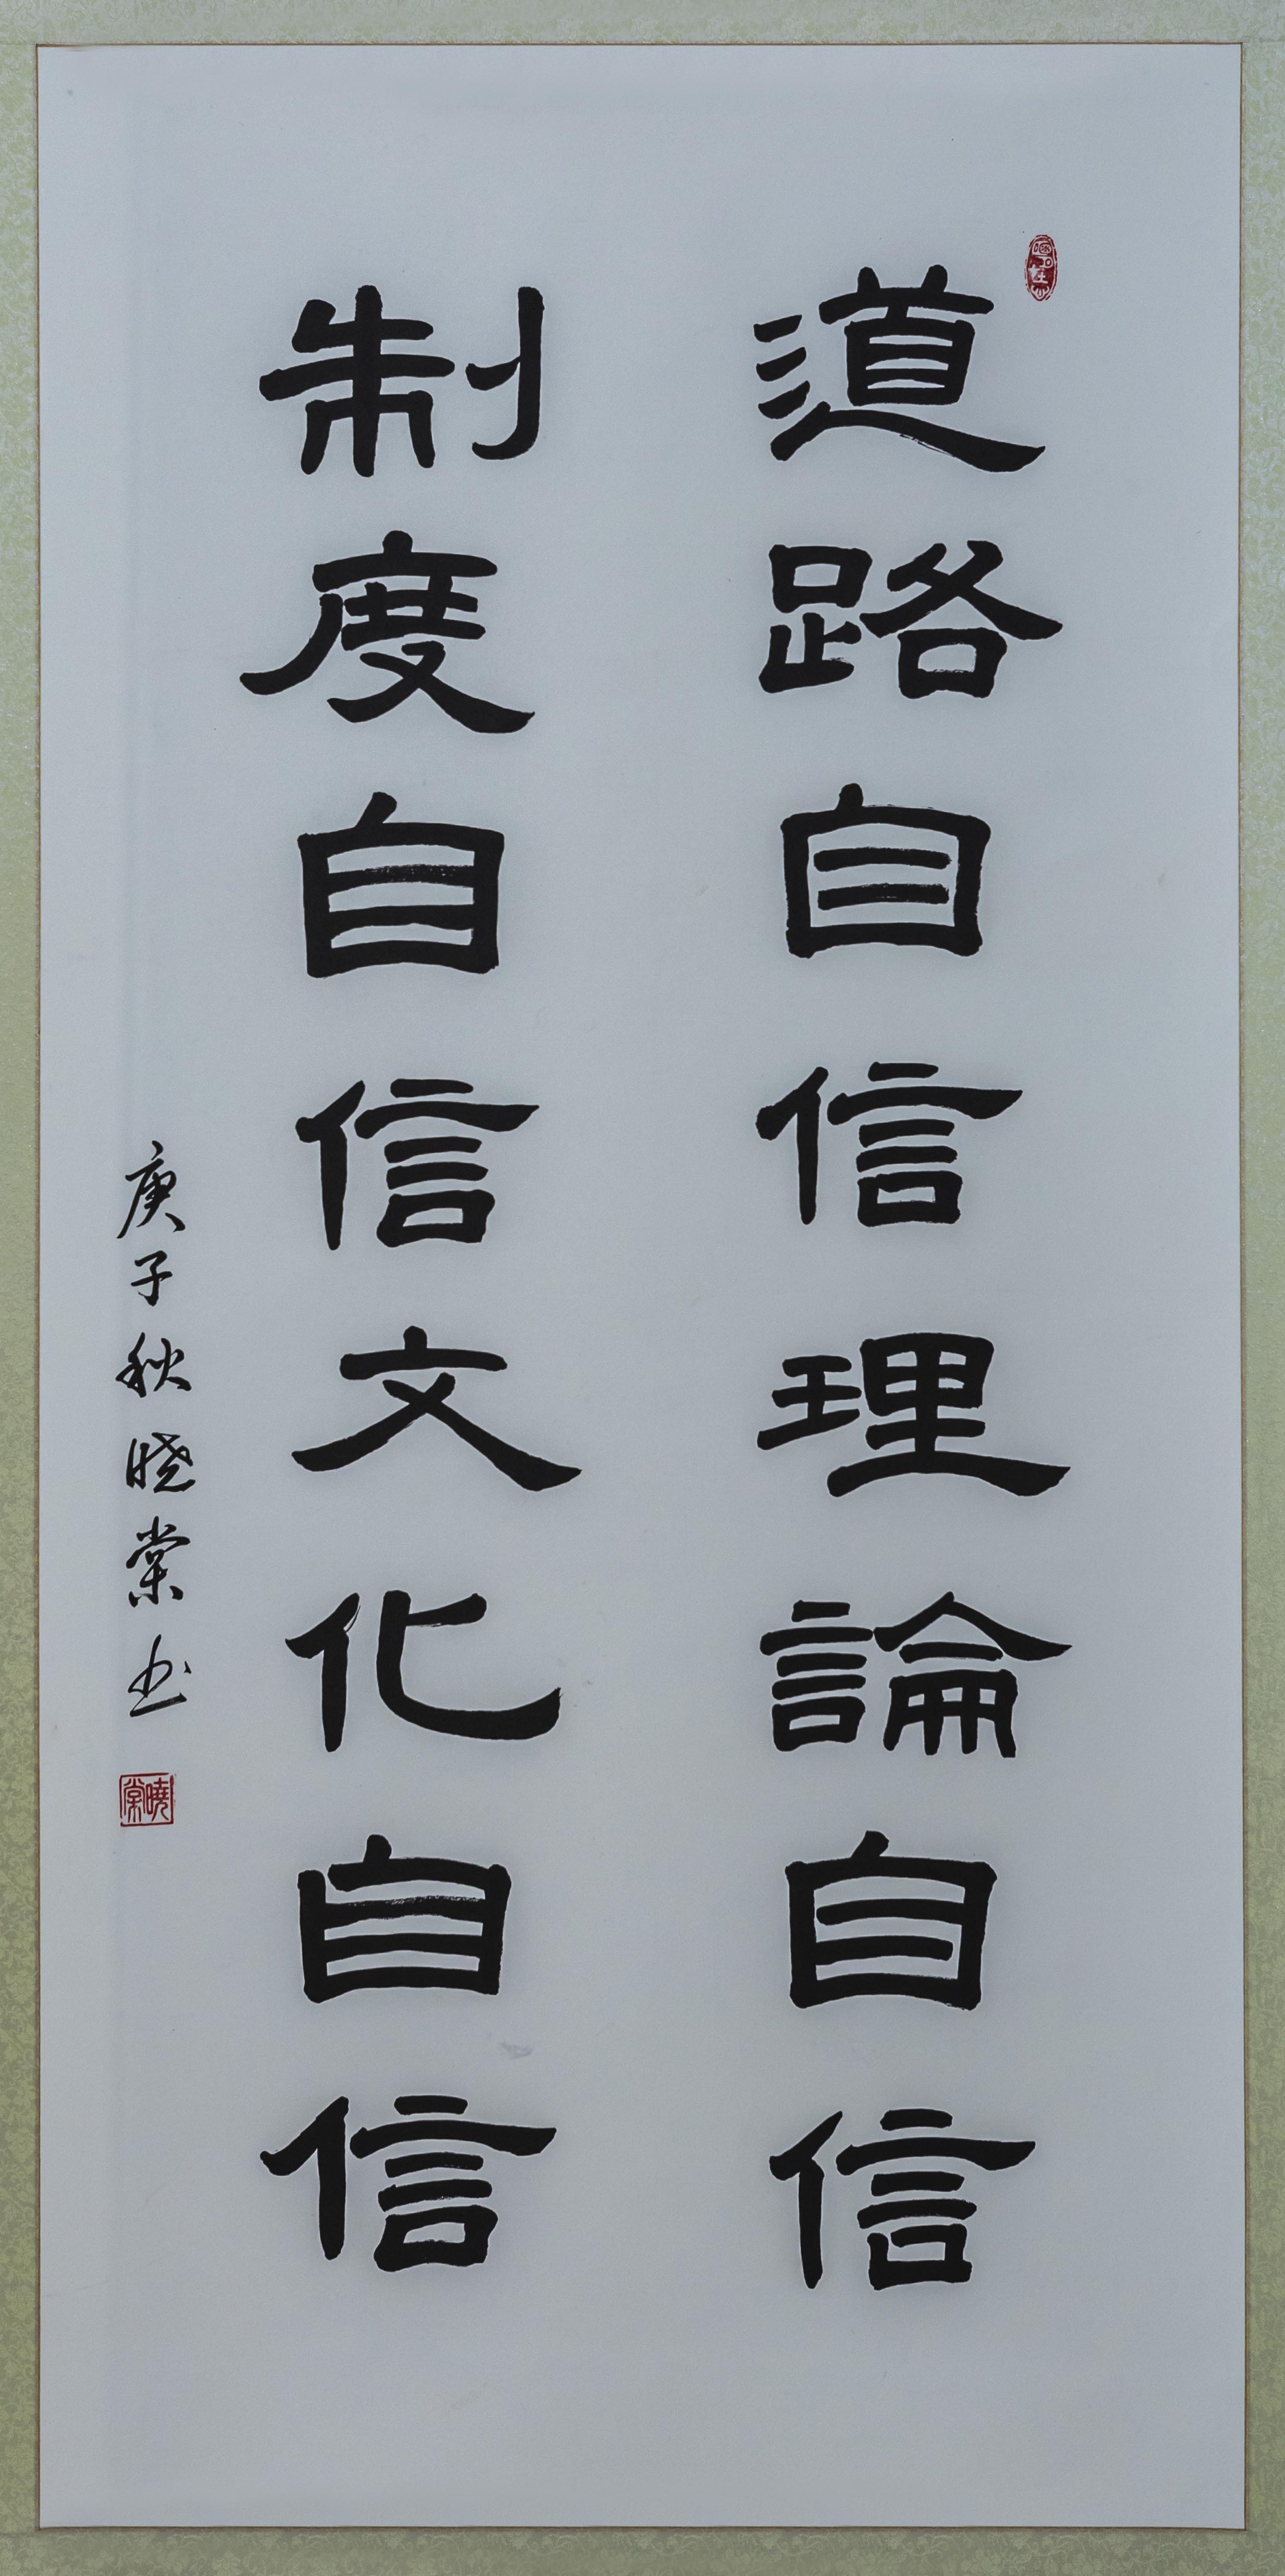 道路自信理論自信
制度自信文化自信
庚子秋晓棠书
曉棠